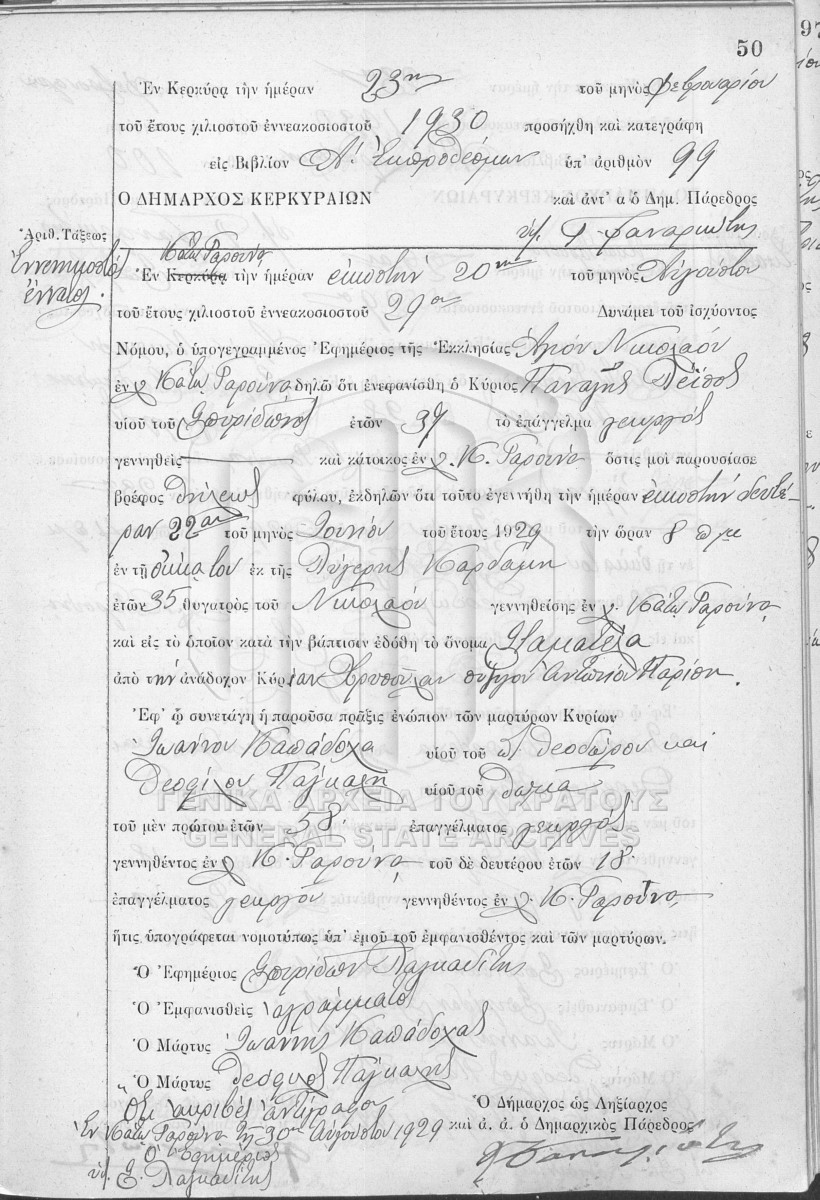 50
Ἐν Κερκύρᾳ τὴν ἡμέραν 23ην τοῦ μηνὸς Φεβρουαρίου
τοῦ ἔτους χιλιοστοῦ ἐννεακοσιοστοῦ 1930 προσήχθη καὶ κατεγράφη
εἰς Βιβλίον Α. Ἐκπροθέσμων ὑπ' ἀριθμὸν 99
Ο ΔΗΜΑΡΧΟΣ ΚΕΡΚΥΡΑΙΩΝ καὶ ἀντ' α ὁ Δημ. Πάρεδρος
Ἀριθ. Τάξεως
Κάτω Γαρούνα
Ἐν Κερκύρᾳ τὴν ἡμέραν εἰκοστὴν 20ην τοῦ μηνὸς Αὐγούστου
ἔννατος.
τοῦ ἔτους χιλιοστοῦ ἐννεακοσιοστοῦ 29ου Δυνάμει τοῦ ἰσχύοντος
Νόμου, ὁ ὑπογεγραμμένος Ἐφημέριος τῆς Ἐκκλησίας Ἁγίου Νικολάου
ἐν χ. Κάτω Γαρούνα δηλῶ ὅτι ἐνεφανίσθη ὁ Κύριος Παναγῆς
υἱοῦ τοῦ Σπυρίδωνος ἐτῶν 37 τὸ ἐπάγγελμα γεωργός
γεννηθεὶς καὶ κάτοικος ἐν χ. Κ. Γαρούνα ὅστις μοὶ παρουσίασε
βρέφος θήλεως φύλου, ἐκδηλῶν ὅτι τοῦτο ἐγεννήθη τὴν ἡμέραν εἰκοστὴν δευτέ-
ραν 22αν τοῦ μηνὸς Ἰουνίου τοῦ ἔτους 1929 τὴν ὥραν 8 π μ
ἐν τῇ οἰκίᾳ του ἐκ τῆς Λυγερῆς Καρδάμη
ἐτῶν 35 θυγατρὸς τοῦ Νικολάου γεννηθείσης ἐν χ. Κάτω Γαρούνα
καὶ εἰς τὸ ὁποῖον κατὰ τὴν βάπτισιν ἐδόθη τὸ ὄνομα Σταματέλα
ἀπὸ τὴν ἀνάδοχον Κυρίαν Χρυσούλαν σύζυγον Ἀντωνίου
Ἐφ' ᾧ συνετάγη ἡ παροῦσα πρᾶξις ἐνώπιον τῶν μαρτύρων Κυρίων
Ἰωάννου Καπάδοχα υἱοῦ τοῦ Θεοδώρου καὶ
Θεοφίλου υἱοῦ τοῦ Θωμᾶ
ΓΕΝΙΚΑ ΑΡΧΕΙΑ ΤΟΥ ΚΡΑΤΟΥΣ
τοῦ μὲν πρώτου ἐτῶν 58 ἐπαγγέλματος γεωργός
GENERAL STATE ARCHIVES
γεννηθέντος ἐν χ. Κ. Γαρούνα τοῦ δὲ δευτέρου ἐτῶν 18
ἐπαγγέλματος γεωργοῦ γεννηθέντος ἐν χ. Κ. Γαρούνα
ἥτις ὑπογράφεται νομοτύπως ὑπ' ἐμοῦ τοῦ ἐμφανισθέντος καὶ τῶν μαρτύρων.
Ὁ Ἐφημέριος Σπυρίδων
Ὁ Ἐμφανισθεὶς ἀγράμματος
Ὁ Μάρτυς Ἰωάννης Καπάδοχας
Ὁ Μάρτυς Θεόφιλος
ἀκριβὲς ἀντίγραφον
Ἐν Κάτω Γαρούνα τῇ 30ῃ Αὐγούστου 1929
Ὁ Δήμαρχος ὡς Ληξίαρχος
Ὁ Ἐφημέριος
καὶ ἀ. ἀ. ὁ Δημαρχικὸς Πάρεδρος